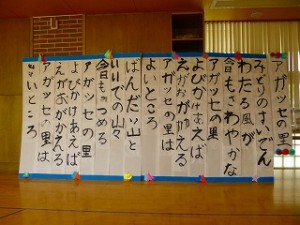 みどりのすいでん
わたる風が
今日もさわやかな
アガッセの里
よびかけあえば
えがおが
アガッセの里は
よいところ
ばんだい山と
いいでの山々
今日もみつめる
アガッセの里
よびかけあえば
えがおがかえる
アガッセの里は
よいところ